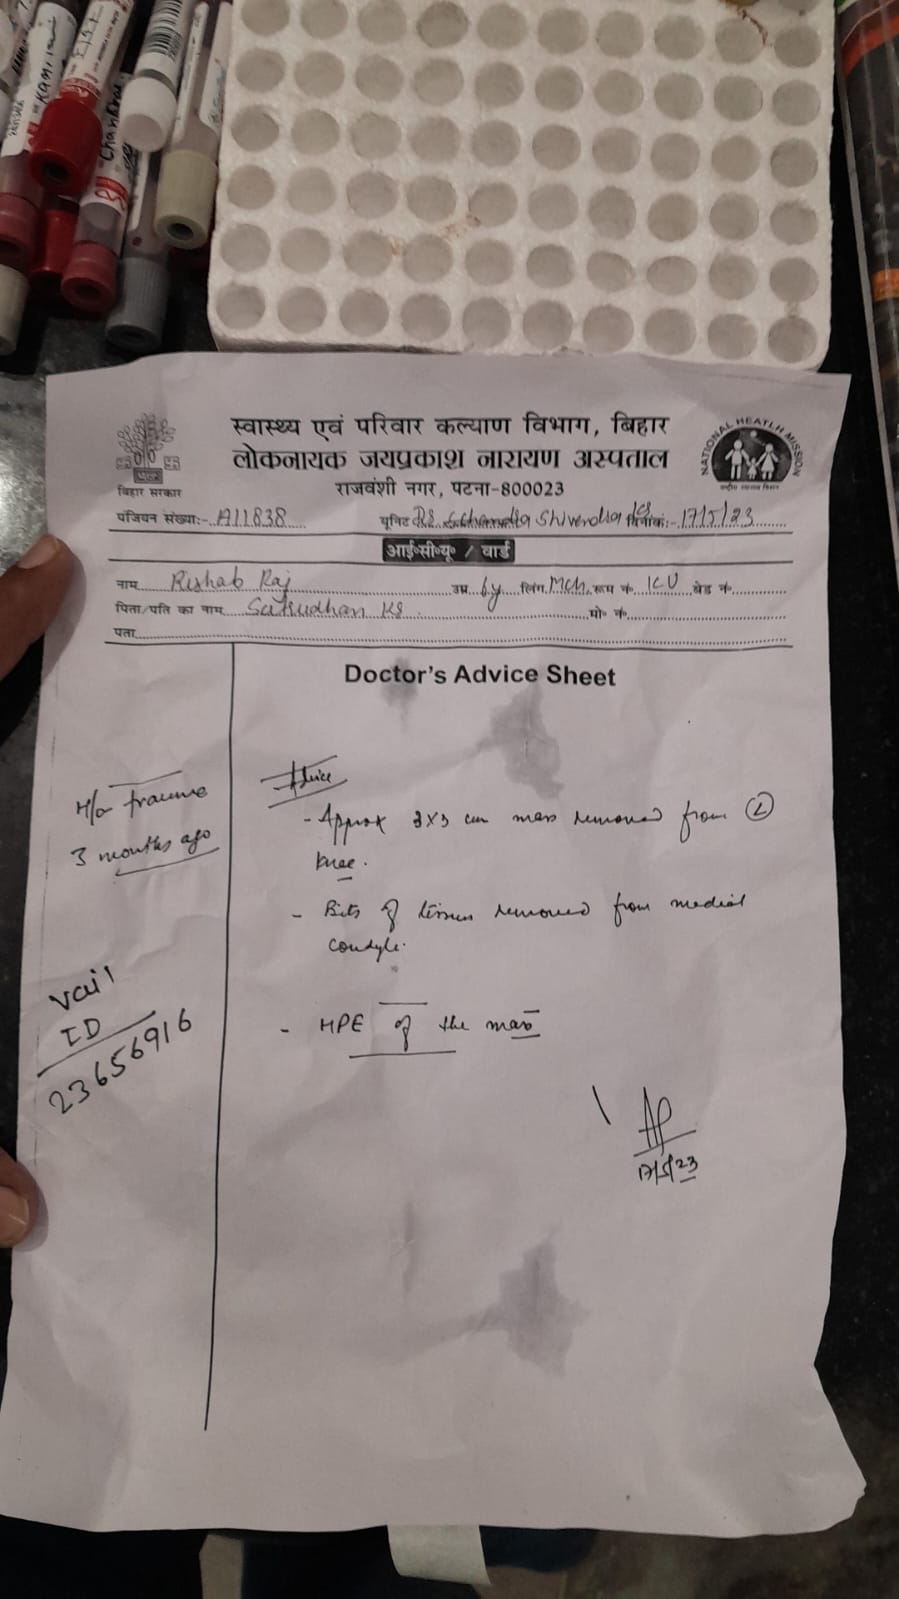 KAMINI
Chandras
स्वास्थ्य एवं परिवार कल्याण विभाग, बिहार
लोकनायक जयप्रकाश नारायण अस्पताल
राजवंशी नगर, पटना-800023
बिहार सरकार
NATIONAL HEATLH MISSION
पंजियन संख्या:- 1911838 यूनिट Shivendra दिनांक:- 17/5/23
आई॰सी॰यू॰ / वार्ड
नाम Rishab Raj उम्र 6y लिंग Mch रूम नं. ICU बेड नं.
पिता/पति का नाम Satrudhan Kr. मो॰ नं.
पता
Doctor's Advice Sheet
H/o trauma
3 months ago
Advice
- Approx 3x3 cm mass removed from (L)
knee.
- Bits of tissue removed from medial
condyle.
- HPE of the mass
Vail
ID
23656916
17/5/23